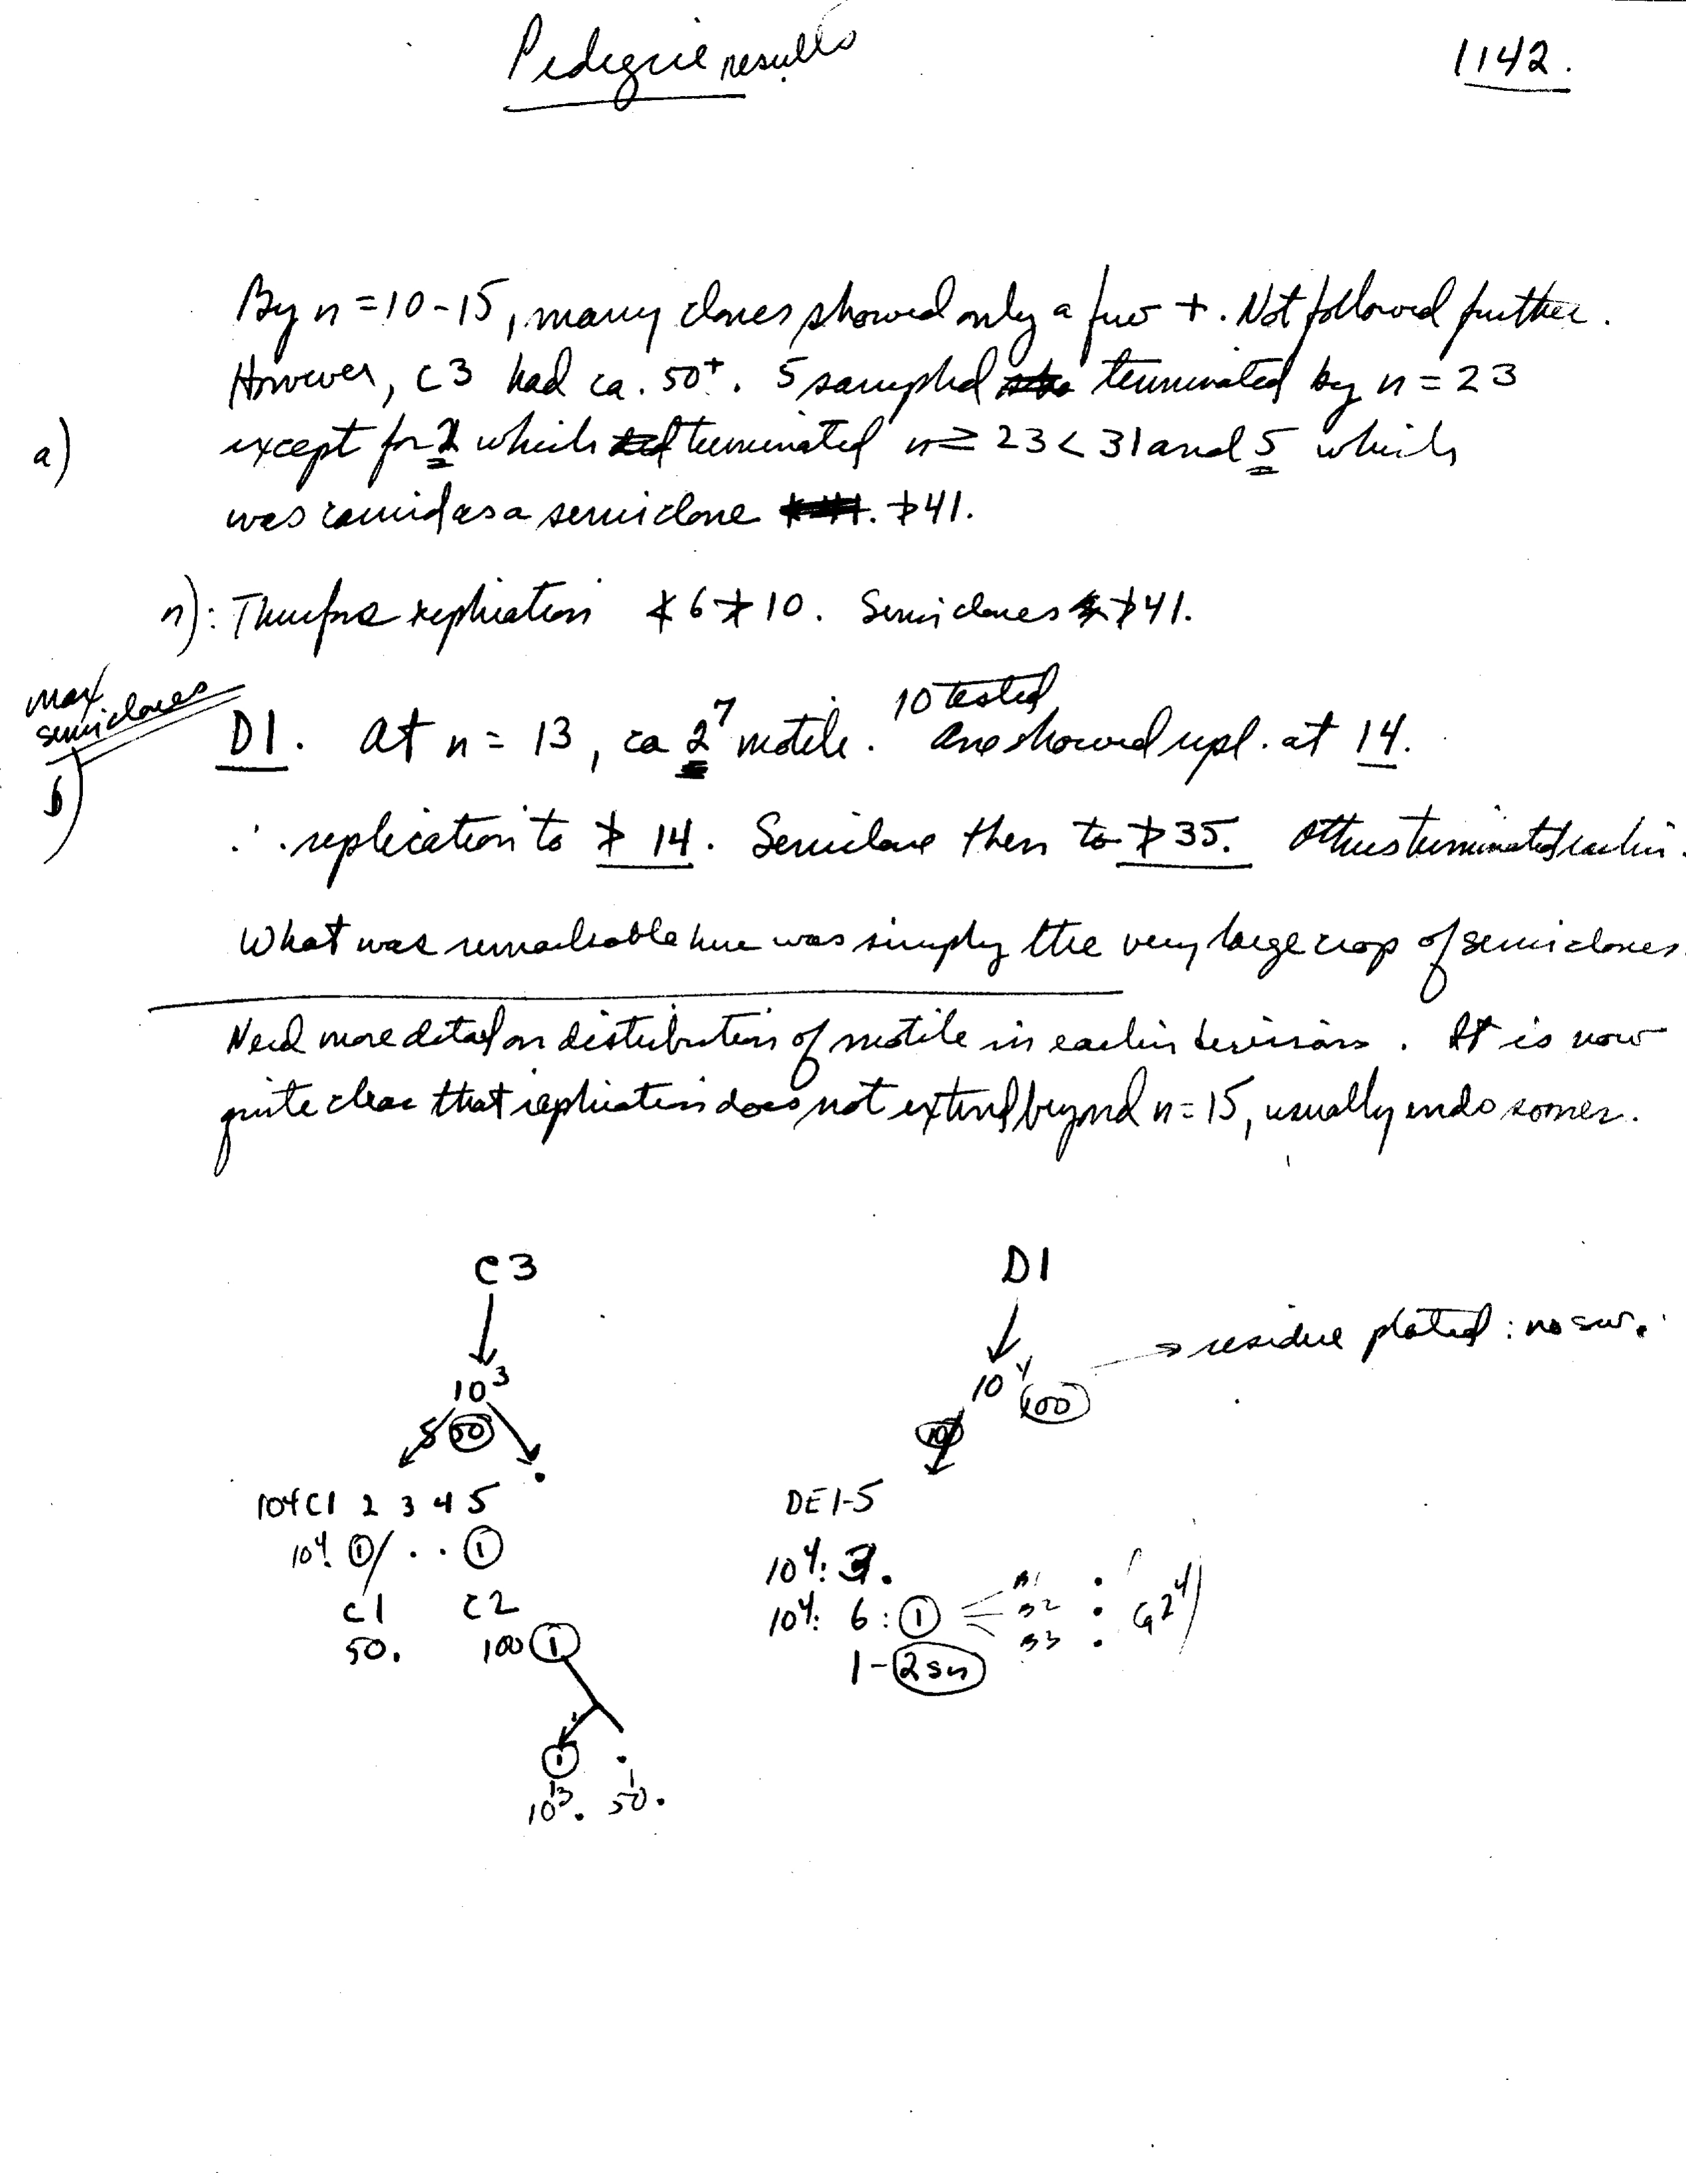 Pedigree results
1142.
By n = 10-15, many clones showed only a few +. Not followed further.
However, C3 had ca. 50+. 5 sampled terminated by n = 23
a) except for 2 which terminated n ≥ 23 < 31 and 5 which
was carried as a semiclone ≯41.
n): Therefore replication ≮6 ≯10. Semiclones ≯41.
max
semiclones
b)
10 tested
D1. At n = 13, ca 2⁷ motile. One showed repl. at 14.
∴ replication to ≯ 14. Semiclone then to ≯35. Others terminated earlier.
What was remarkable here was simply the very large crop of semiclones.
Need more detail on distribution of motile in earlier divisions. It is now
quite clear that replication does not extend beyond n = 15, usually ends sooner.
C3
D1
→ residue plated: no
10³
10⁴ 100
5 50
10⁴ C1 2 3 4 5
DE 1-5
10⁴. 1 / . . 1
10⁴: 3.
C1 C2
10⁴: 6 : 1
B2
B3
50. 100 1
1-2
1
10³. 50.